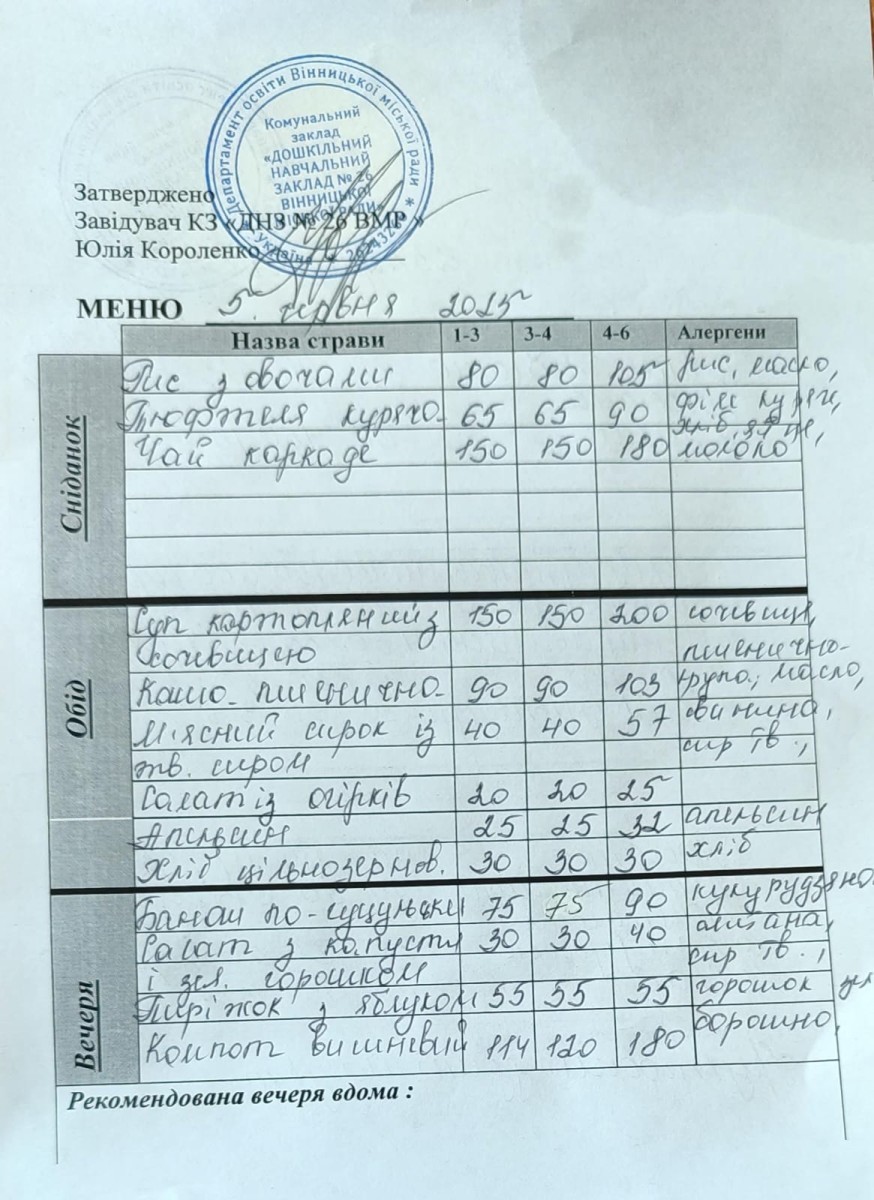 Департамент освіти Вінницької міської ради * Україна *
Комунальний
заклад
«ДОШКІЛЬНИЙ
НАВЧАЛЬНИЙ
ЗАКЛАД № 26
ВІННИЦЬКОЇ
МІСЬКОЇ РАДИ»
Затверджено
Завідувач КЗ «ДНЗ № 26 ВМР »
Юлія Короленко
МЕНЮ 5. червня 2025
Назва страви 1-3 3-4 4-6 Алергени
Сніданок
Рис з овочами 80 80 105 Рис, масло,
Тюфтеля куряча 65 65 90 філе куряче,
хліб, яйце,
Чай каркаде 150 150 180 молоко
Обід
Суп картопляний з 150 150 200 сочевиця,
сочевицею пшенично-
Каша пшенична 90 90 103 крупа, масло,
М'ясний сирок із 40 40 57 свинина,
тв. сиром сир тв.,
Салат із огірків 20 20 25
Апельсин 25 25 32 апельсин
Хліб цільнозернов. 30 30 30 хліб
Вечеря
Банош по-гуцульськи 75 75 90 кукурудзяна
Салат з капусти 30 30 40 сметана,
і зел. горошком сир тв.,
Пиріжок з яблуком 55 55 55 горошок зел
Компот вишневий 114 120 180 борошно,
Рекомендована вечеря вдома :